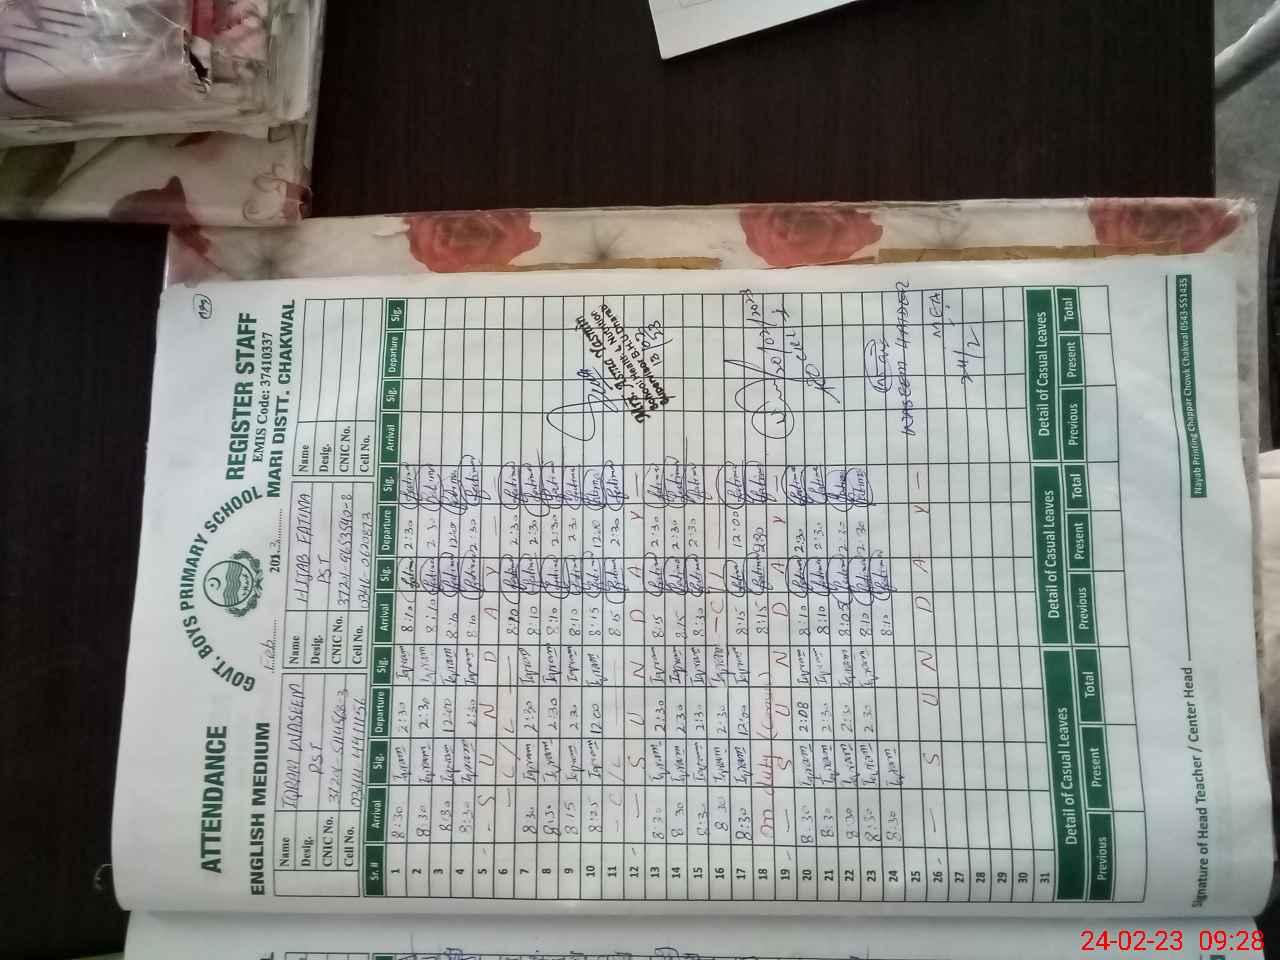 ATTENDANCE REGISTER STAFF
GOVT. BOYS PRIMARY SCHOOL
EMIS Code: 37410337
ENGLISH MEDIUM MARI DISTT. CHAKWAL
Feb 201
Name IQRAM WASEEM Name HIJAB FATIMA Name
Desig. PST Desig. PST Desig.
CNIC No. CNIC No. CNIC No.
Cell No. Cell No. Cell No.
Sr.# Arrival Sig. Departure Sig. Arrival Sig. Departure Sig. Arrival Sig. Departure Sig.
1 8:30 Iqram 2:30 Iqram 8:10 Fatima 2:30 Fatima
2 8:30 Iqram 2:30 Iqram 8:10 Fatima 2:30 Fatima
3 8:30 Iqram 12:00 Iqram 8:10 Fatima 12:00 Fatima
4 8:30 Iqram 2:30 Iqram 8:10 Fatima 2:30 Fatima
5 - S U N D A Y -
6 - C/L - 8:10 Fatima 2:30 Fatima
7 8:30 Iqram 2:30 Iqram 8:10 Fatima 2:30 Fatima
8 8:30 Iqram 2:30 Iqram 8:10 Fatima 2:30 Fatima
9 8:15 Iqram 2:30 Iqram 8:10 Fatima 2:30 Fatima
10 8:25 Iqram 12:00 Iqram 8:15 Fatima 12:00 Fatima
11 - C/L - 8:15 Fatima 2:30 Fatima
12 - S U N D A Y -
13 8:30 Iqram 2:30 Iqram 8:15 Fatima 2:30 Fatima
14 8:30 Iqram 2:30 Iqram 8:15 Fatima 2:30 Fatima
15 8:30 Iqram 2:30 Iqram 8:30 Fatima 2:30 Fatima
16 8:30 Iqram 2:30 Iqram - C/L -
17 8:30 Iqram 12:00 Iqram 8:15 Fatima 12:00 Fatima
18 on duty 8:15 Fatima 2:30 Fatima
19 - S U N D A Y -
20 8:30 Iqram 2:08 Iqram 8:10 Fatima 2:30 Fatima
21 8:30 Iqram 2:30 Iqram 8:10 Fatima 2:30 Fatima
22 8:30 Iqram 2:30 Iqram 8:05 Fatima 2:30 Fatima
23 8:30 Iqram 2:30 Iqram 8:10 Fatima 2:30 Fatima
24 8:30 Iqram 8:10 Fatima
25
26 - S U N D A Y -
27
28
29
30
31
Mrs. Asma Yasmin
School Health & Nutrition
Supervisor B.H.U Dharabi
20/02/2023
WASEEM HAIDER
MEA
24/2
Detail of Casual Leaves Detail of Casual Leaves Detail of Casual Leaves
Previous Present Total Previous Present Total Previous Present Total
Signature of Head Teacher / Center Head
Nayab Printing Chappar Chowk Chakwal 0543-551435
24-02-23 09:28